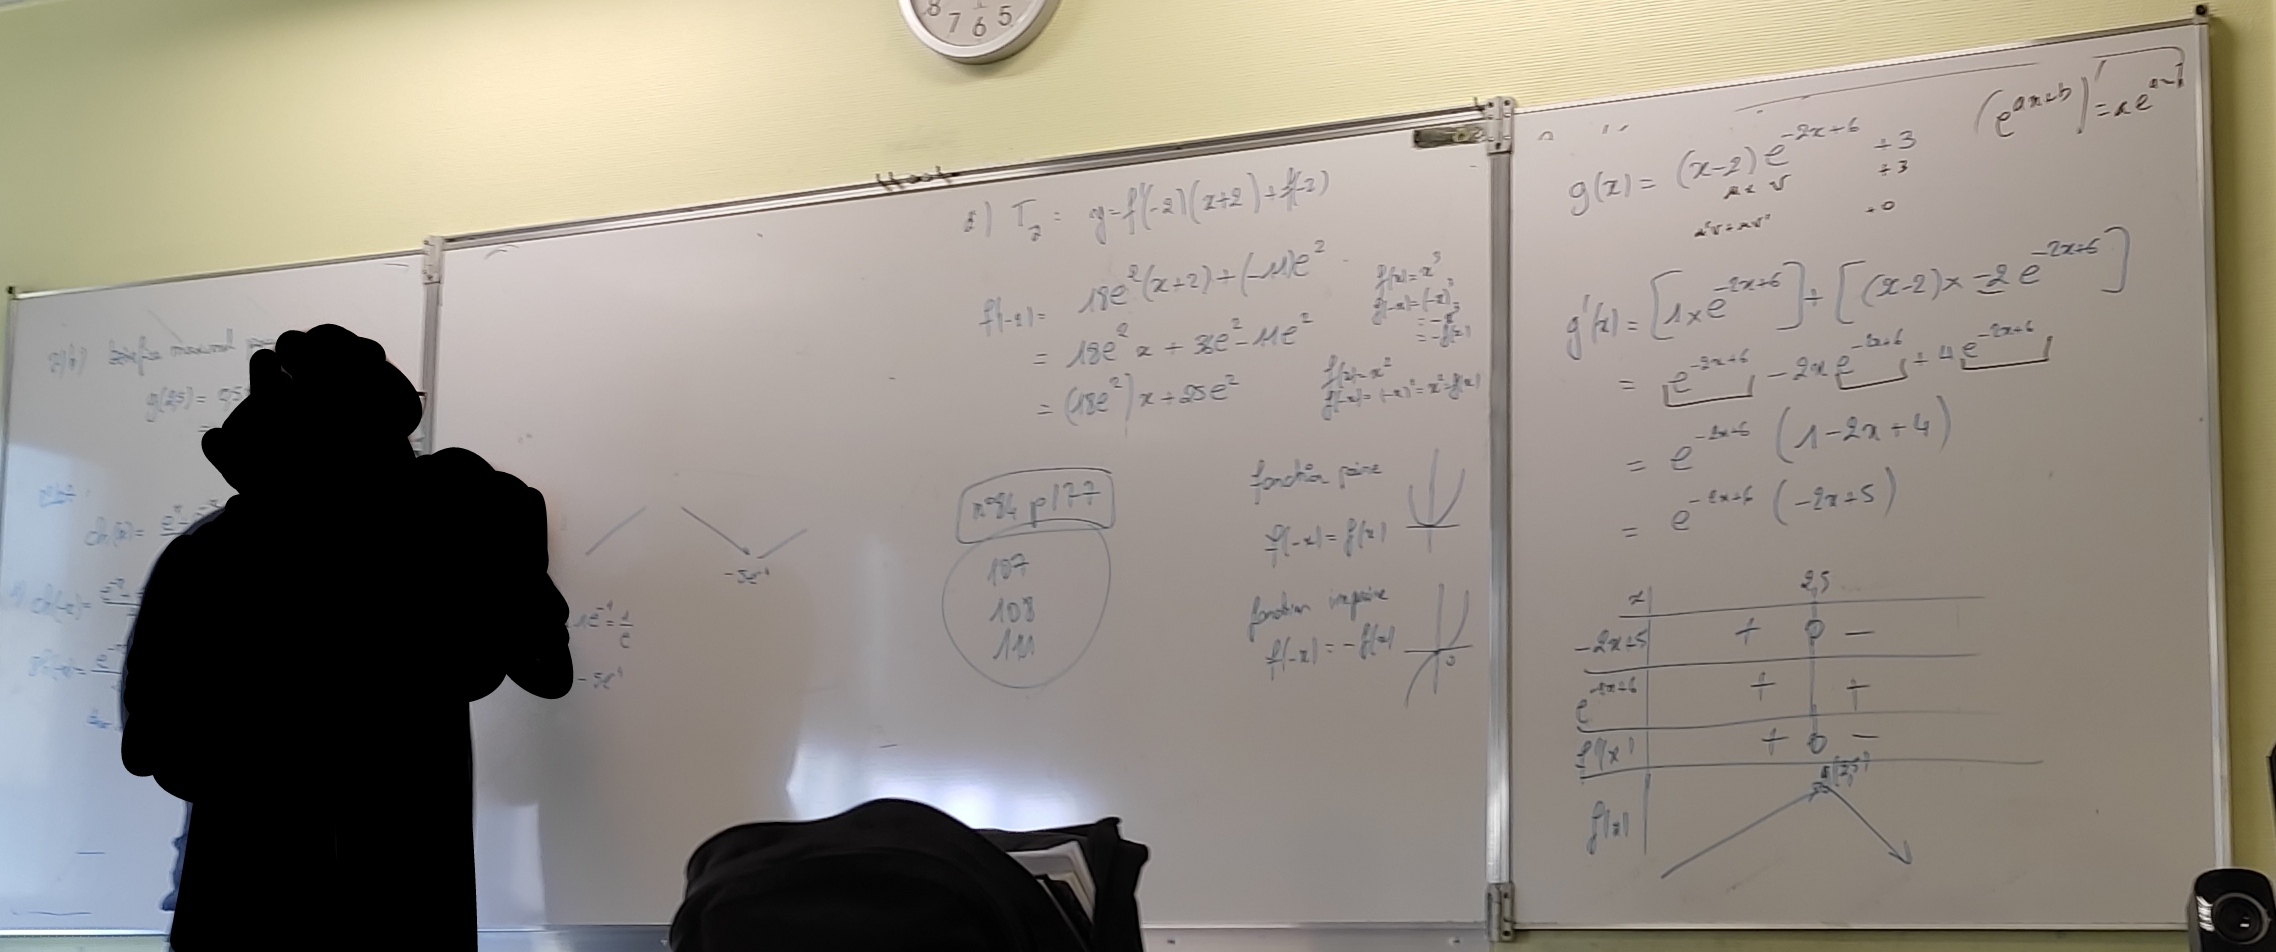 8 7 6 5
g(2,5) =
ch(x) =
ch(-x) =
-5e⁻¹
1e⁻¹ = 1/e
-5e⁻¹
y = f'(-2)(x+2) + f(-2)
= 18e²(x+2) + (-11)e²
= 18e²x + 36e² - 11e²
= (18e²)x + 25e²
f(x) = x³
f(-x) = (-x)³
= -x³
= -f(x)
f(x) = x²
f(-x) = (-x)² = x² = f(x)
n°84 p177
107
108
111
fonction paire
f(-x) = f(x)
fonction impaire
f(-x) = -f(x)
0
(e^(ax+b))' =
g(x) = (x-2)e^(-2x+6) + 3
u × v + 3
u'v + uv' + 0
g'(x) = [1 × e^(-2x+6)] + [(x-2) × -2e^(-2x+6)]
= e^(-2x+6) - 2x e^(-2x+6) + 4e^(-2x+6)
= e^(-2x+6) (1 - 2x + 4)
= e^(-2x+6) (-2x + 5)
x 2,5
-2x+5 + 0 -
e^(-2x+6) + +
f'(x) + 0 -
f(x)